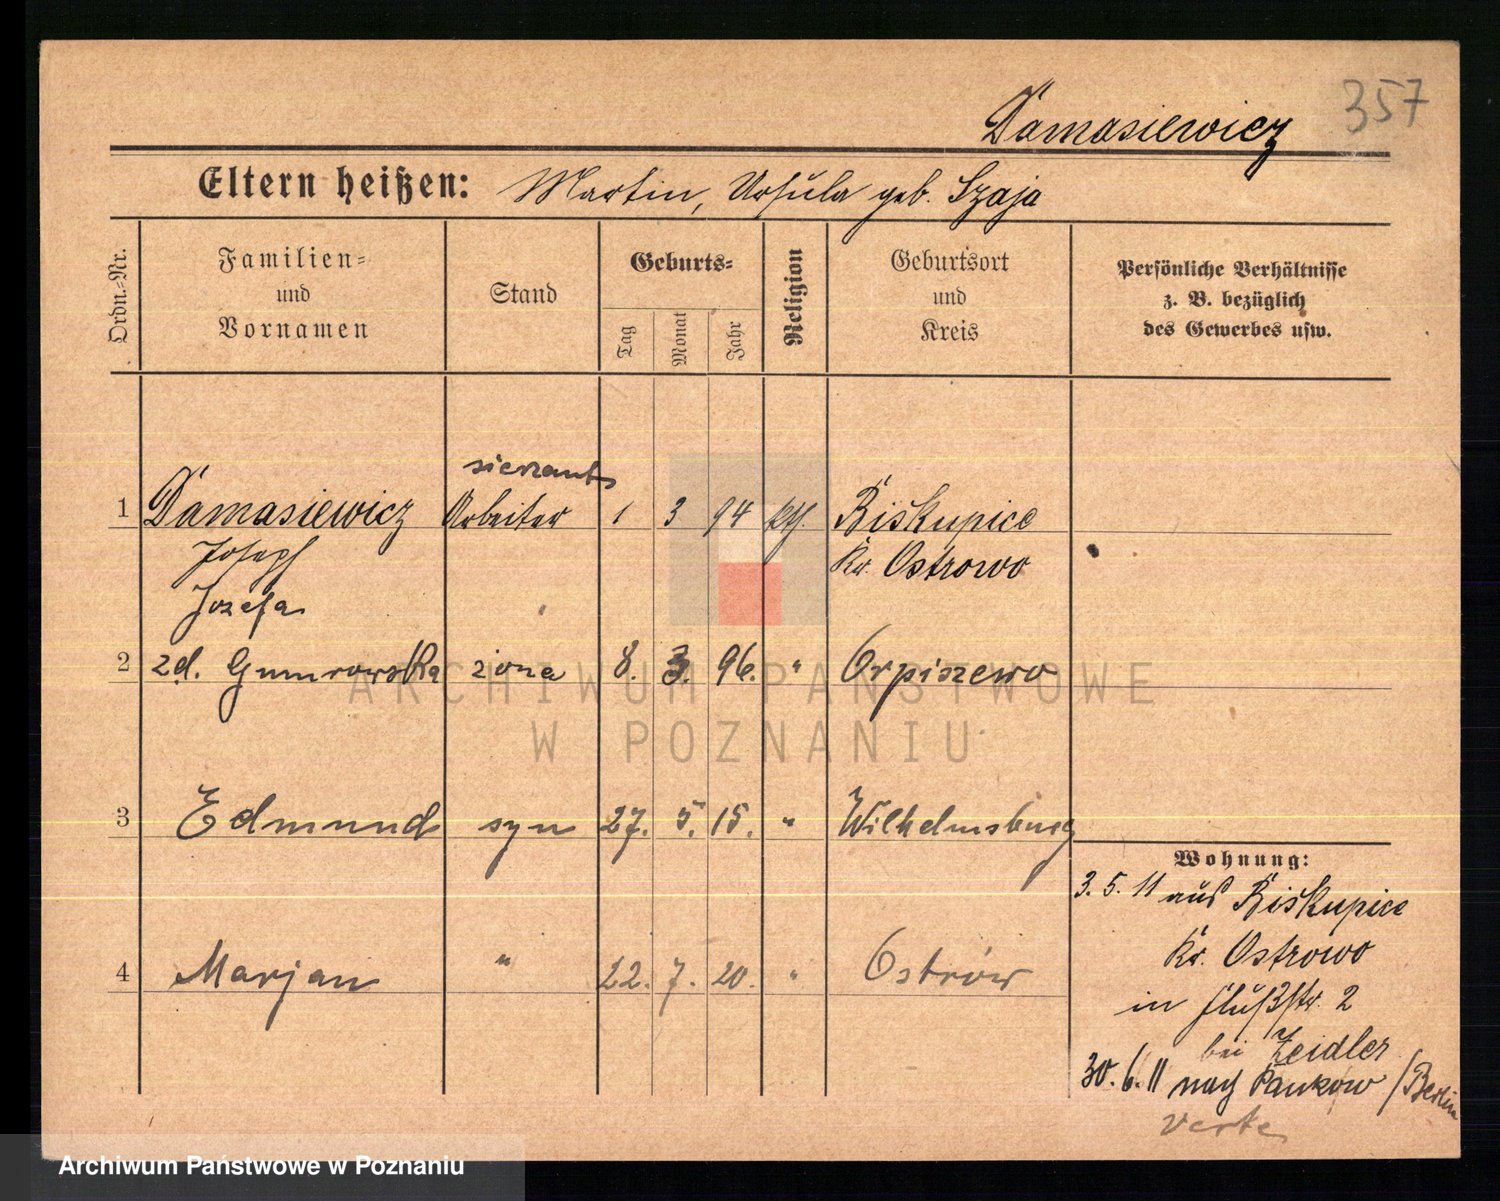 357
Damasiewicz
Eltern heißen: Martin, Ursula geb. Szaja
Ordn.-Nr.
Familien-
und
Vornamen
Stand
Geburts-
Tag
Monat
Jahr
Religion
Geburtsort
und
Kreis
Persönliche Verhältnisse
z. B. bezüglich
des Gewerbes usw.
sierzant
1 Damasiewicz Arbeiter 1 3 94 kth. Biskupice
Joseph Kr. Ostrowo
Jozefa
2 zd. Gumrowska zona 8. 3. 96. " Orpiszewo
3 Edmund syn 27. 5. 15. " Wilhelmsburg
4 Marjan " 22. 7. 20. " Ostrów
Wohnung:
3. 5. 11 aus Biskupice
Kr. Ostrowo
in Flußstr. 2
bei Zeidler
30. 6. 11 nach Pankow / Berlin
verte
ARCHIWUM PAŃSTWOWE
W POZNANIU
Archiwum Państwowe w Poznaniu